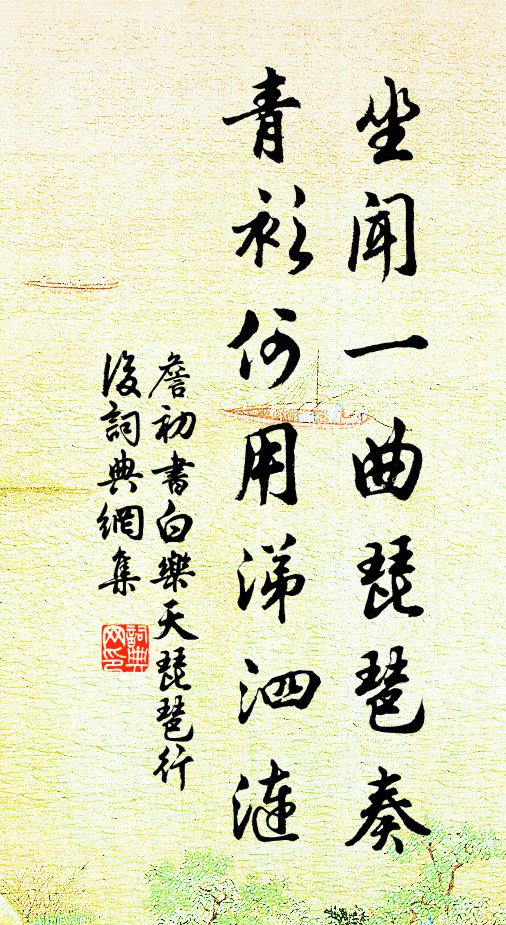 坐聞一曲琵琶奏
青衫何用涕泗漣
詹初書白樂天琵琶行
後詞典網集
詞典
网印